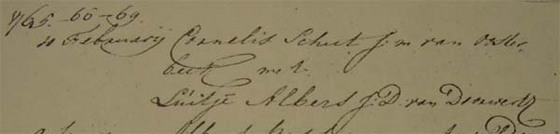 65. 66-69.
11 Februarij Cornelis Schut J:m van Ooster
beek met
Luitje Albers J:D. van Doorwerth